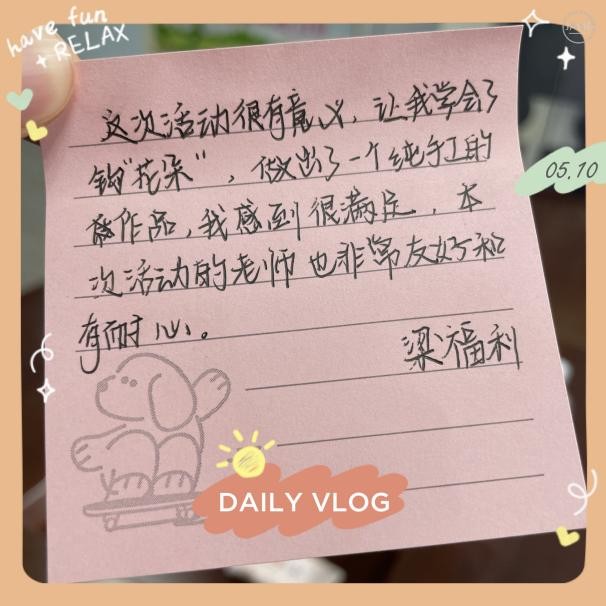 have fun
RELAX
05.10
这次活动很有意义，让我学会了
钩“花朵”，做出了一个纯手工的
作品，我感到很满足，本
次活动的老师也非常友好和
有耐心。
梁福利
DAILY VLOG